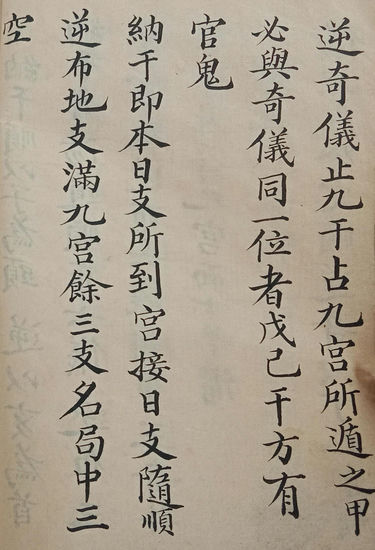 逆奇儀止九干占九宮所遁之甲
必與奇儀同一位者戊己干方有
官鬼
納干即本日支所到宮接日支隨順
逆布地支滿九宮餘三支名局中三
空